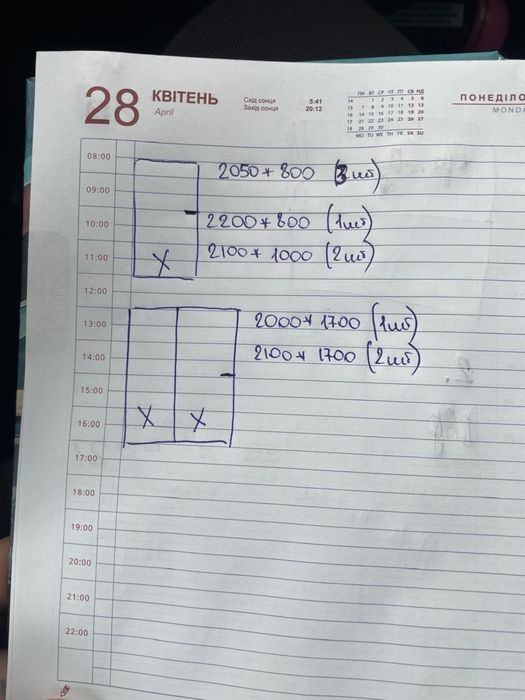 28 КВІТЕНЬ
April
Схід сонця 5:41
Захід сонця 20:12
ПН ВТ СР ЧТ ПТ СБ НД
14 1 2 3 4 5 6
15 7 8 9 10 11 12 13
16 14 15 16 17 18 19 20
17 21 22 23 24 25 26 27
18 28 29 30
MO TU WE TH FR SA SU
ПОНЕДІЛО
MONDA
08:00
2050 * 800 (3 шт)
09:00
10:00
2200 * 800 (1 шт)
11:00
2100 * 1000 (2 шт)
X
12:00
13:00
2000 * 1700 (1 шт)
14:00
2100 * 1700 (2 шт)
15:00
16:00
X X
17:00
18:00
19:00
20:00
21:00
22:00